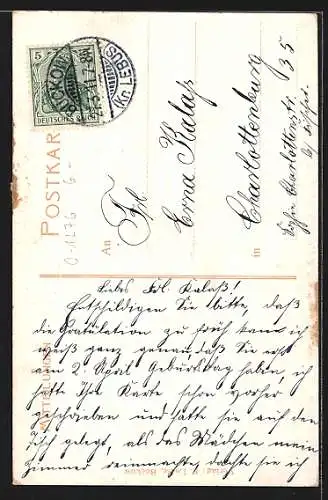 5
DEUTSCHES REICH
BUCKOW
(Kr. LEBUS)
POSTKARTE
0-1276 6-
An Frl.
Erna Kalaß
in Charlottenburg
Sophie Charlottenstr. 35
MITTEILUNGEN
Liebes Frl. Kalaß!
Entschuldigen Sie bitte, daß
die Gratulation zu früh kam ich
weiß ganz genau, daß Sie erst
am 2. April Geburtstag haben, ich
hatte Ihre Karte schon vorher
geschrieben und hatte sie auf den
Tisch gelegt, als das Mädchen mein
Zimmer reinmachte, dachte sie ich